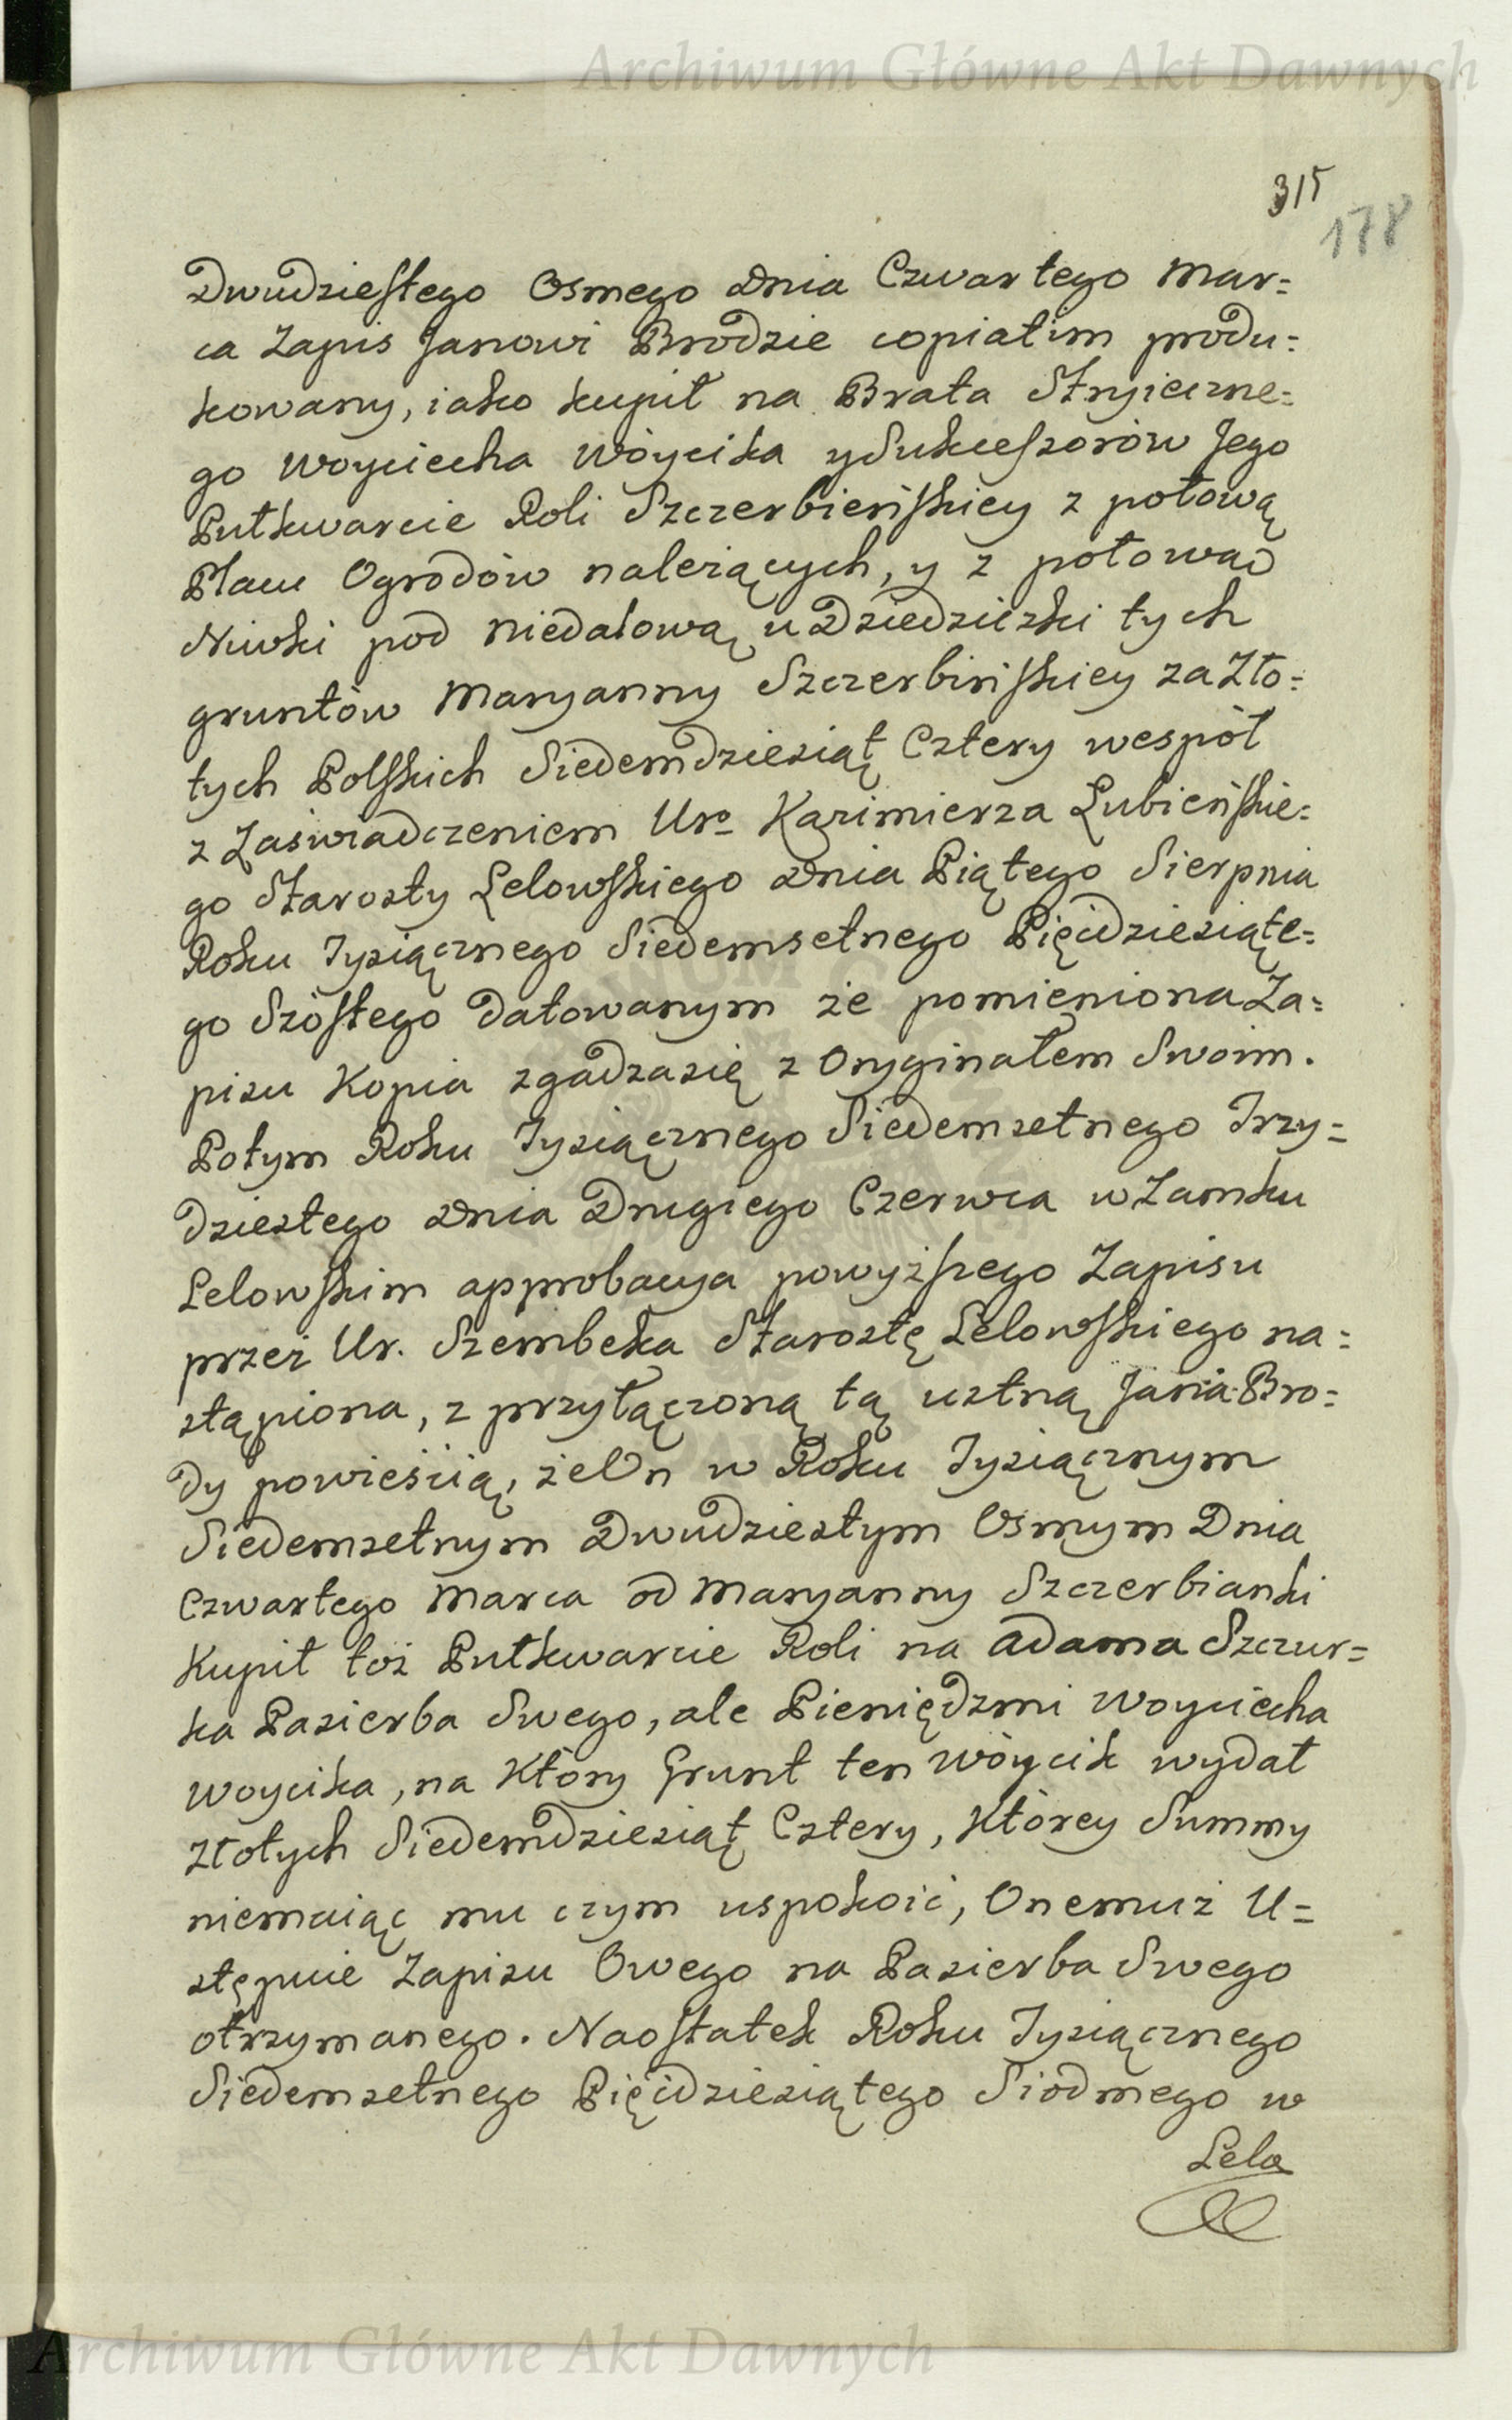 Archiwum Główne Akt Dawnych
315
178
Dwudziestego Osmego Dnia Czwartego Mar=
ca Zapis Janowi Brodzie copiatim produ=
kowany, iako kupił na Brata Stryieczne=
go Woyciecha Wóycika y Sukcessorów Jego
Pułkwarcie Roli Szczerbieńskiey z połową
Placu Ogrodów należących, y z połową
Niwki pod Niedalową u Dziedziczki tych
gruntów Maryanny Szczerbińskiey za Zło=
tych Polskich Siedemdziesiąt Cztery wespół
z Zaświadczeniem Uro Kazimierza Łubieńskie=
go Starosty Lelowskiego Dnia Piątego Sierpnia
Roku Tysiącznego Siedemsetnego Pięćdziesiąte=
go Szóstego datowanym że pomieniona Za=
pisu Kopia zgadza się z Oryginałem Swoim.
Potym Roku Tysiącznego Siedemsetnego Trzy=
dziestego Dnia Drugiego Czerwca w Zamku
Lelowskim approbacya powyższego Zapisu
przez Ur. Szembeka Starostę Lelowskiego na=
stąpiona, z przyłączoną tą ustną Jana Bro=
dy powieścią, że On w Roku Tysiącznym
Siedemsetnym Dwudziestym Osmym Dnia
Czwartego Marca od Maryanny Szczerbianki
Kupił toż Pułkwarcie Roli na Adama Szczur=
ka Pasierba Swego, ale Pieniędzmi Woyciecha
Woycika, na Który Grunt ten Wóycik wydał
Złotych Siedemdziesiąt Cztery, Którey Summy
niemaiąc mu czym uspokoić, Onemuż U=
stępuie Zapisu Owego na Pasierba Swego
otrzymanego. Naostatek Roku Tysiącznego
Siedemsetnego Pięćdziesiątego Siodmego w
Lelo
Archiwum Główne Akt Dawnych